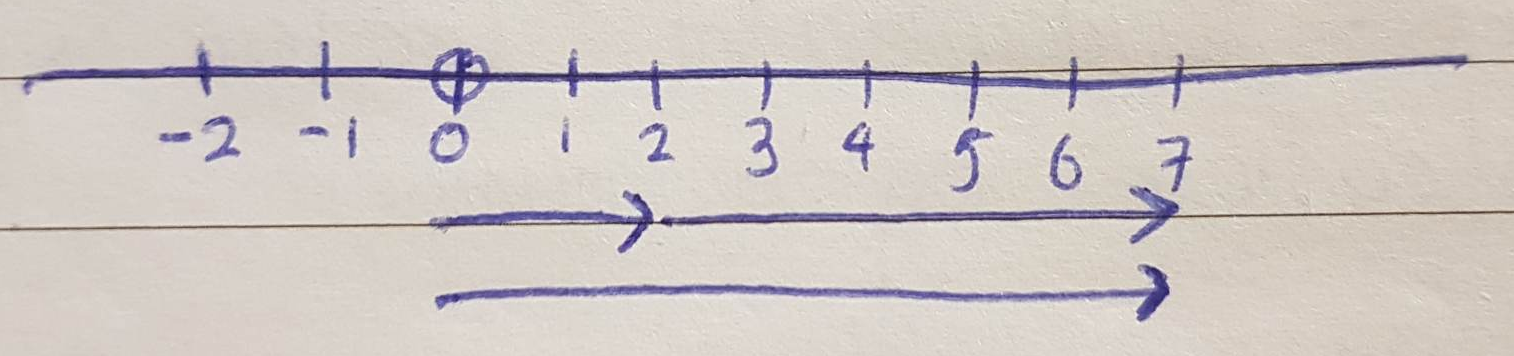 -2 -1 0 1 2 3 4 5 6 7